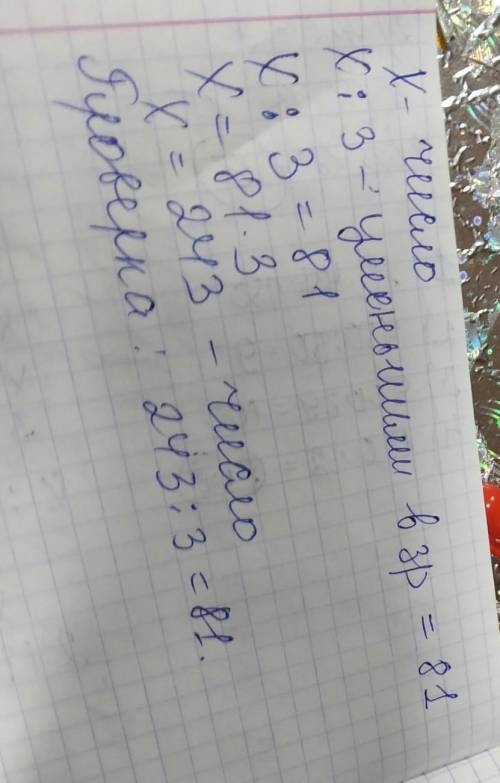 х - число
х : 3 - уменьшили в 3р = 81
х : 3 = 81
х = 81 · 3
х = 243 - число
Проверка: 243 : 3 = 81.